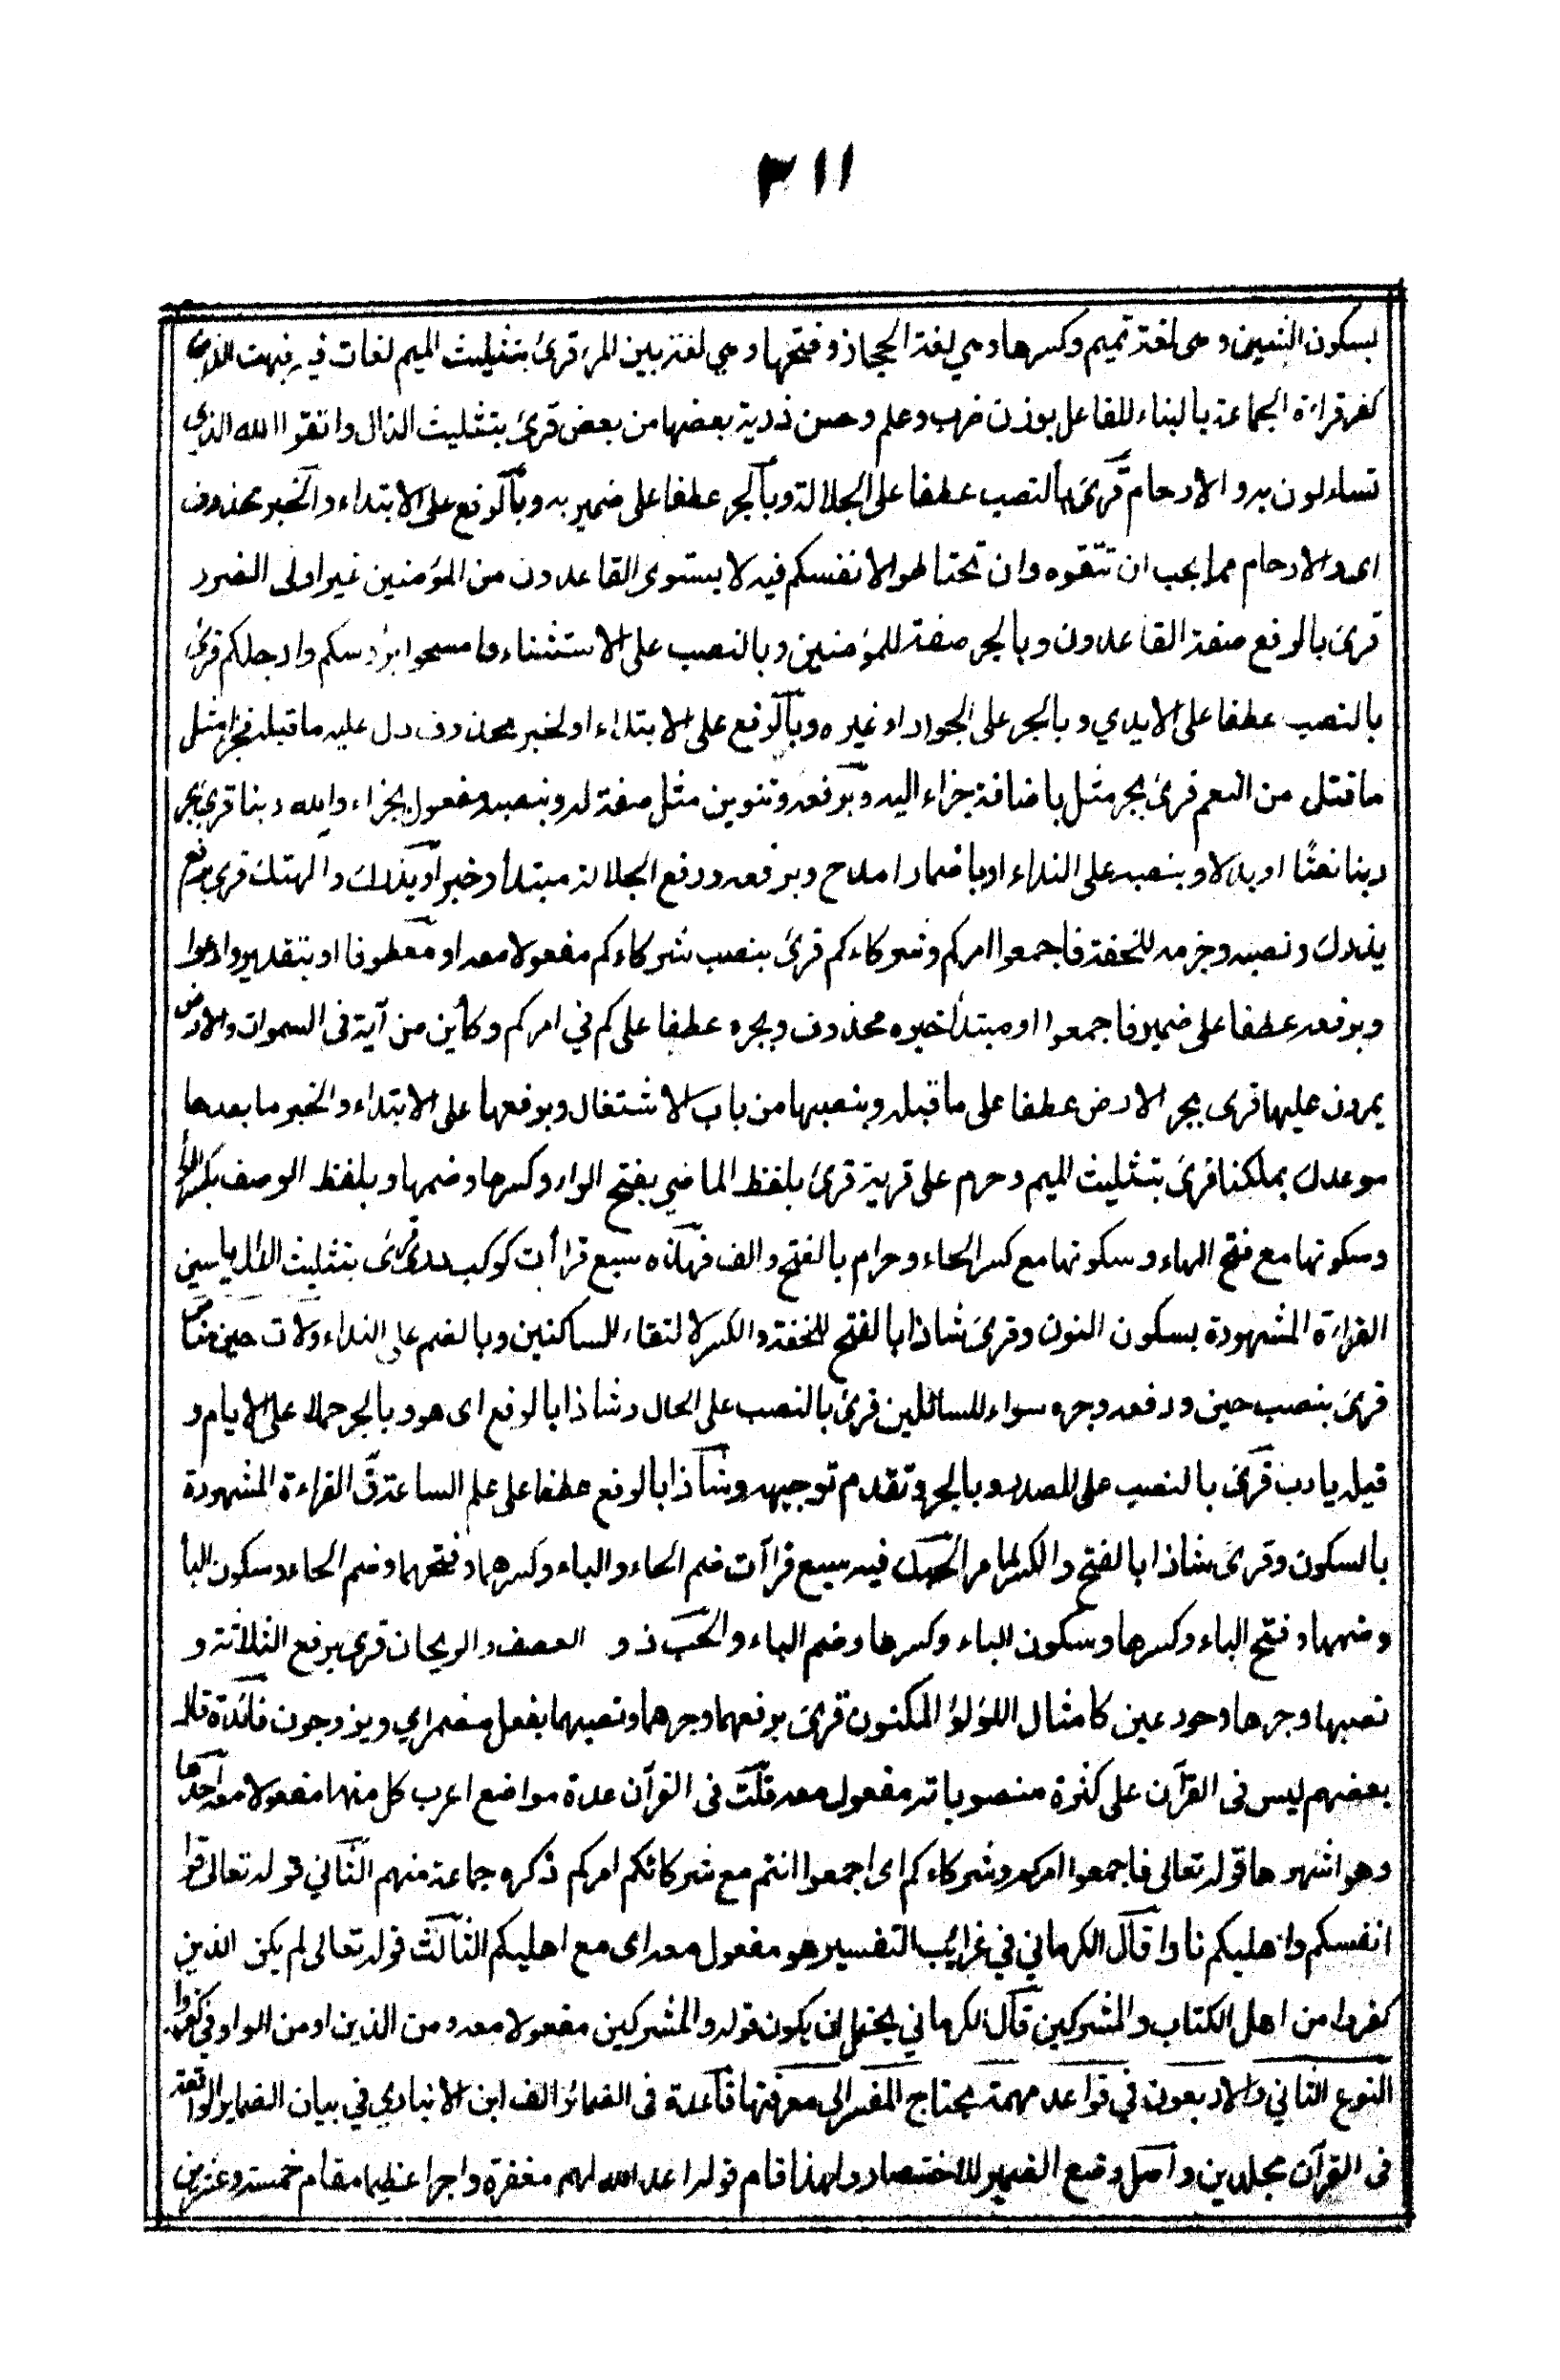 ٣١١
بسكون الشين وهي لغة تميم وكسرها وهي لغة الحجاز وفتحها وهي لغة بين المرء قرئ بتثليث الميم لغات فيه فبهت الذي
كفر قراءة الجماعة بالبناء للفاعل بوزن ضرب وعلم وحسن ذرية بعضها من بعض قرئ بتثليث الذال واتقوا الله الذي
تساءلون به والارحام قرئ بالنصب عطفا على الجلالة وبالجر عطفا على ضمير به وبالرفع على الابتداء والخبر محذوف
اى والارحام مما يجب ان تتقوه وان تحتاطوا لانفسكم فيه لا يستوى القاعدون من المؤمنين غير اولى الضرر
قرئ بالرفع صفة القاعدون وبالجر صفة للمؤمنين وبالنصب على الاستثناء وامسحوا برؤسكم وارجلكم قرئ
بالنصب عطفا على الايدي وبالجر على الجوار او غيره وبالرفع على الابتداء او لخبر محذوف دل عليه ما قبله فجزاء مثل
ما قتل من النعم قرئ بجر مثل باضافة جزاء اليه وبرفعه وتنوين مثل صفة له وبنصبه مفعول بجزاء والله ربنا قرئ بجر
ربنا نعتا او بدلا وبنصبه على النداء او باضمار امدح وبرفعه ورفع الجلالة مبتدأ وخبر او يذرك والهتك قرئ برفع
يذرك ونصبه وجزمه للخفة فاجمعوا امركم وشركاءكم قرئ بنصب شركاءكم مفعولا معه او معطوفا او بتقدير وادعوا
وبرفعه عطفا على ضمير فاجمعوا او مبتدأ خبره محذوف وبجره عطفا على كم في امركم وكأين من آية فى السموات والارض
يمرون عليها قرى بجر الارض عطفا على ما قبله وبنصبها من باب الاشتغال وبرفعها على الابتداء والخبر ما بعدها
موعدك بملكنا قرئ بتثليث الميم وحرم على قرية قرئ بلفظ الماضي بفتح الراء وكسرها وضمها وبلفظ الوصف بكسر الراء
وسكونها مع فتح الهاء وسكونها مع كسر الحاء وحرام بالفتح والف فهذه سبع قراأت كوكب درى قرئ بتثليث الدال ياسين
القراءة المشهورة بسكون النون وقرئ شاذا بالفتح للخفة والكسر لالتقاء الساكنين وبالضم على النداء ولات حين مناص
قرئ بنصب حين ورفعه وجره سواء للسائلين قرئ بالنصب على الحال وشاذا بالرفع اى هو وبالجر حملا على الايام و
قيله يارب قرئ بالنصب على المصدر وبالجر وتقدم توجيهه وشاذا بالرفع عطفا على علم الساعة قّ القراءة المشهورة
بالسكون وقرئ شاذا بالفتح والكسر لما مر الحبك فيه سبع قراآت ضم الحاء والباء وكسرهما وفتحهما وضم الحاء وسكون البأ
وضمها وفتح الباء وكسرها وسكون الباء وكسرها وضم الباء والحب ذو العصف والريحان قرئ برفع الثلاثة و
نصبها وجرها وحور عين كامثال اللؤلؤ المكنون قرئ برفعهما وجرهما ونصبهما بفعل مضمر اي ويزوجون فائدة قال
بعضهم ليس فى القرآن على كثرة منصوباته مفعول معه قلت فى القرآن عدة مواضع اعرب كل منها مفعولا معه احدها
وهو اشهرها قوله تعالى فاجمعوا امركم وشركاءكم اى اجمعوا انتم مع شركائكم امركم ذكره جماعة منهم الثاني قوله تعالى قوا
انفسكم واهليكم نارا قال الكرماني في غرائب التفسير هو مفعول معه اى مع اهليكم الثالث قوله تعالى لم يكن الذين
كفروا من اهل الكتاب والمشركين قال الكرماني يحتمل ان يكون قوله والمشركين مفعولا معه ومن الذين او من الواو في كفروا
النوع الثاني والاربعون في قواعد مهمة يحتاج المفسر الى معرفتها قاعدة فى الضمائر الف ابن الانباري في بيان الضماير الواقعة
فى القرآن مجلدين واصل وضع الضمير للاختصار ولهذا قام قوله اعد الله لهم مغفرة واجرا عظيما مقام خمسة وعشرين